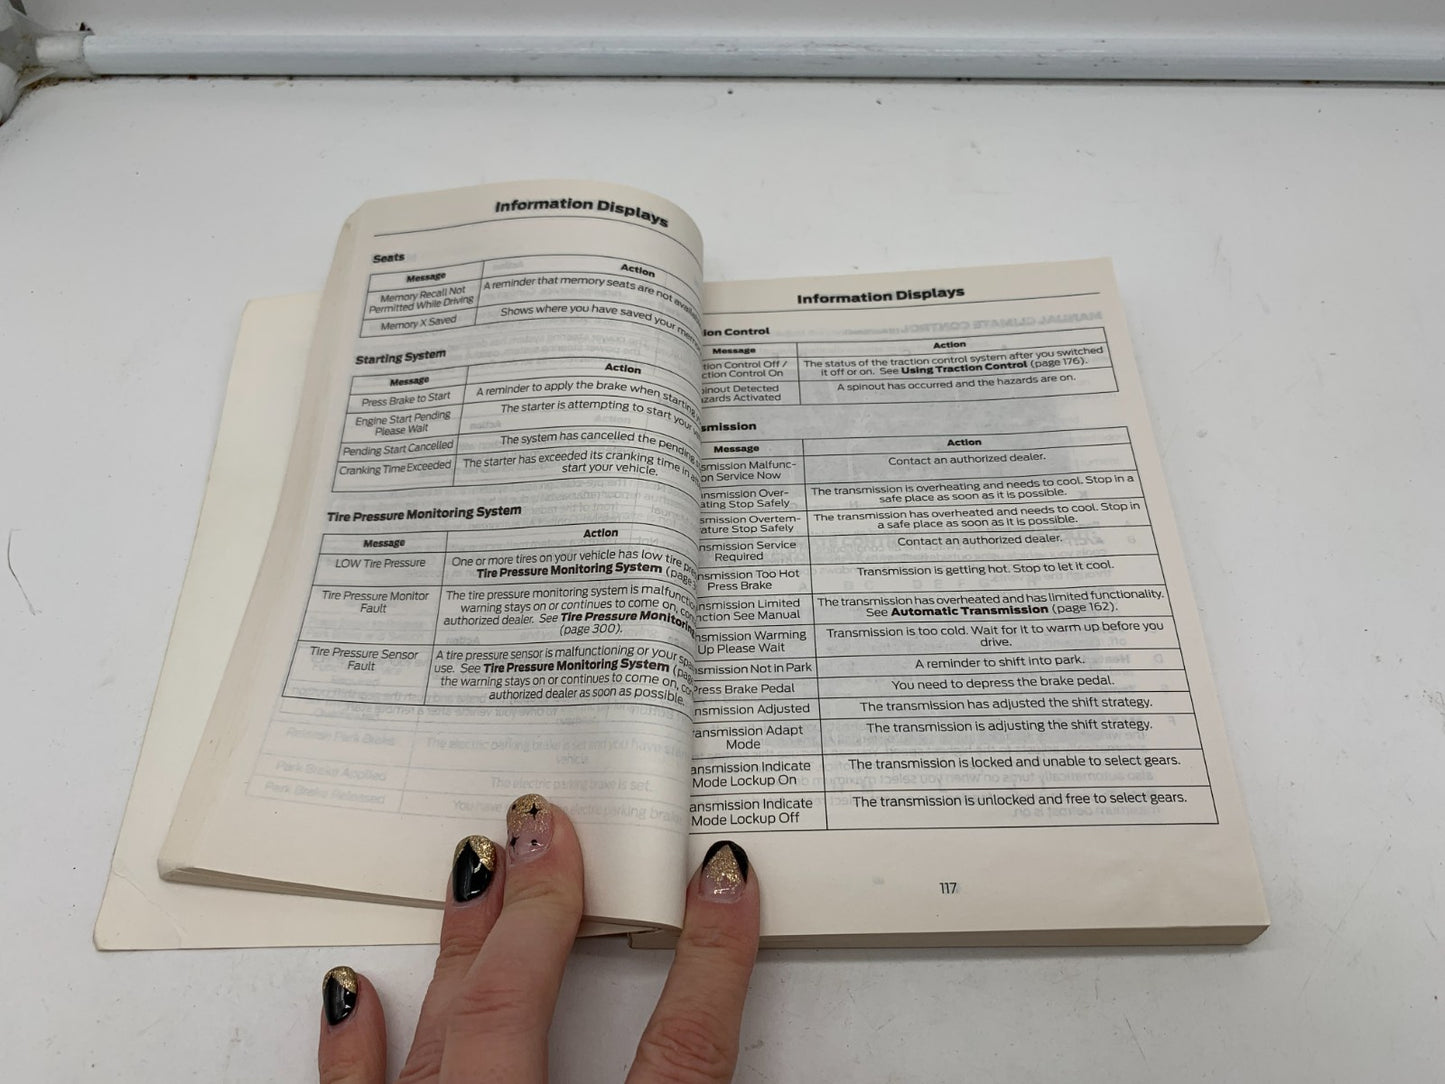 Information Displays
Seats
Message Action
Memory Recall Not
Permitted While Driving
A reminder that memory seats are not
Memory X Saved
Shows where you have saved your
Starting System
Message Action
Press Brake to Start
A reminder to apply the brake when starting
Engine Start Pending
Please Wait
The starter is attempting to start your
Pending Start Cancelled
The system has cancelled the pending
Cranking Time Exceeded
The starter has exceeded its cranking time in
start your vehicle.
Tire Pressure Monitoring System
Message Action
LOW Tire Pressure
One or more tires on your vehicle has low tire
Tire Pressure Monitoring System
Tire Pressure Monitor
Fault
The tire pressure monitoring system is
warning stays on or continues to come on,
authorized dealer. See Tire Pressure Monitoring
(page 300).
Tire Pressure Sensor
Fault
A tire pressure sensor is malfunctioning or your
use. See Tire Pressure Monitoring System
the warning stays on or continues to come on,
authorized dealer as soon as possible.
Release Park Brake
The electric parking brake is set and you
vehicle.
Park Brake Applied
The electric parking brake is set.
Park Brake Released
You have electric parking
Information Displays
ion Control
Message Action
tion Control Off /
ction Control On
The status of the traction control system after you switched
it off or on. See Using Traction Control (page 176).
pinout Detected
azards Activated
A spinout has occurred and the hazards are on.
smission
Message Action
smission Malfunc-
on Service Now
Contact an authorized dealer.
nsmission Over-
ating Stop Safely
The transmission is overheating and needs to cool. Stop in a
safe place as soon as it is possible.
smission Overtem-
ature Stop Safely
The transmission has overheated and needs to cool. Stop in
a safe place as soon as it is possible.
nsmission Service
Required
Contact an authorized dealer.
nsmission Too Hot
Press Brake
Transmission is getting hot. Stop to let it cool.
nsmission Limited
nction See Manual
The transmission has overheated and has limited functionality.
See Automatic Transmission (page 162).
nsmission Warming
Up Please Wait
Transmission is too cold. Wait for it to warm up before you
drive.
nsmission Not in Park
A reminder to shift into park.
Press Brake Pedal
You need to depress the brake pedal.
nsmission Adjusted
The transmission has adjusted the shift strategy.
ansmission Adapt
Mode
The transmission is adjusting the shift strategy.
ansmission Indicate
Mode Lockup On
The transmission is locked and unable to select gears.
ansmission Indicate
Mode Lockup Off
The transmission is unlocked and free to select gears.
117